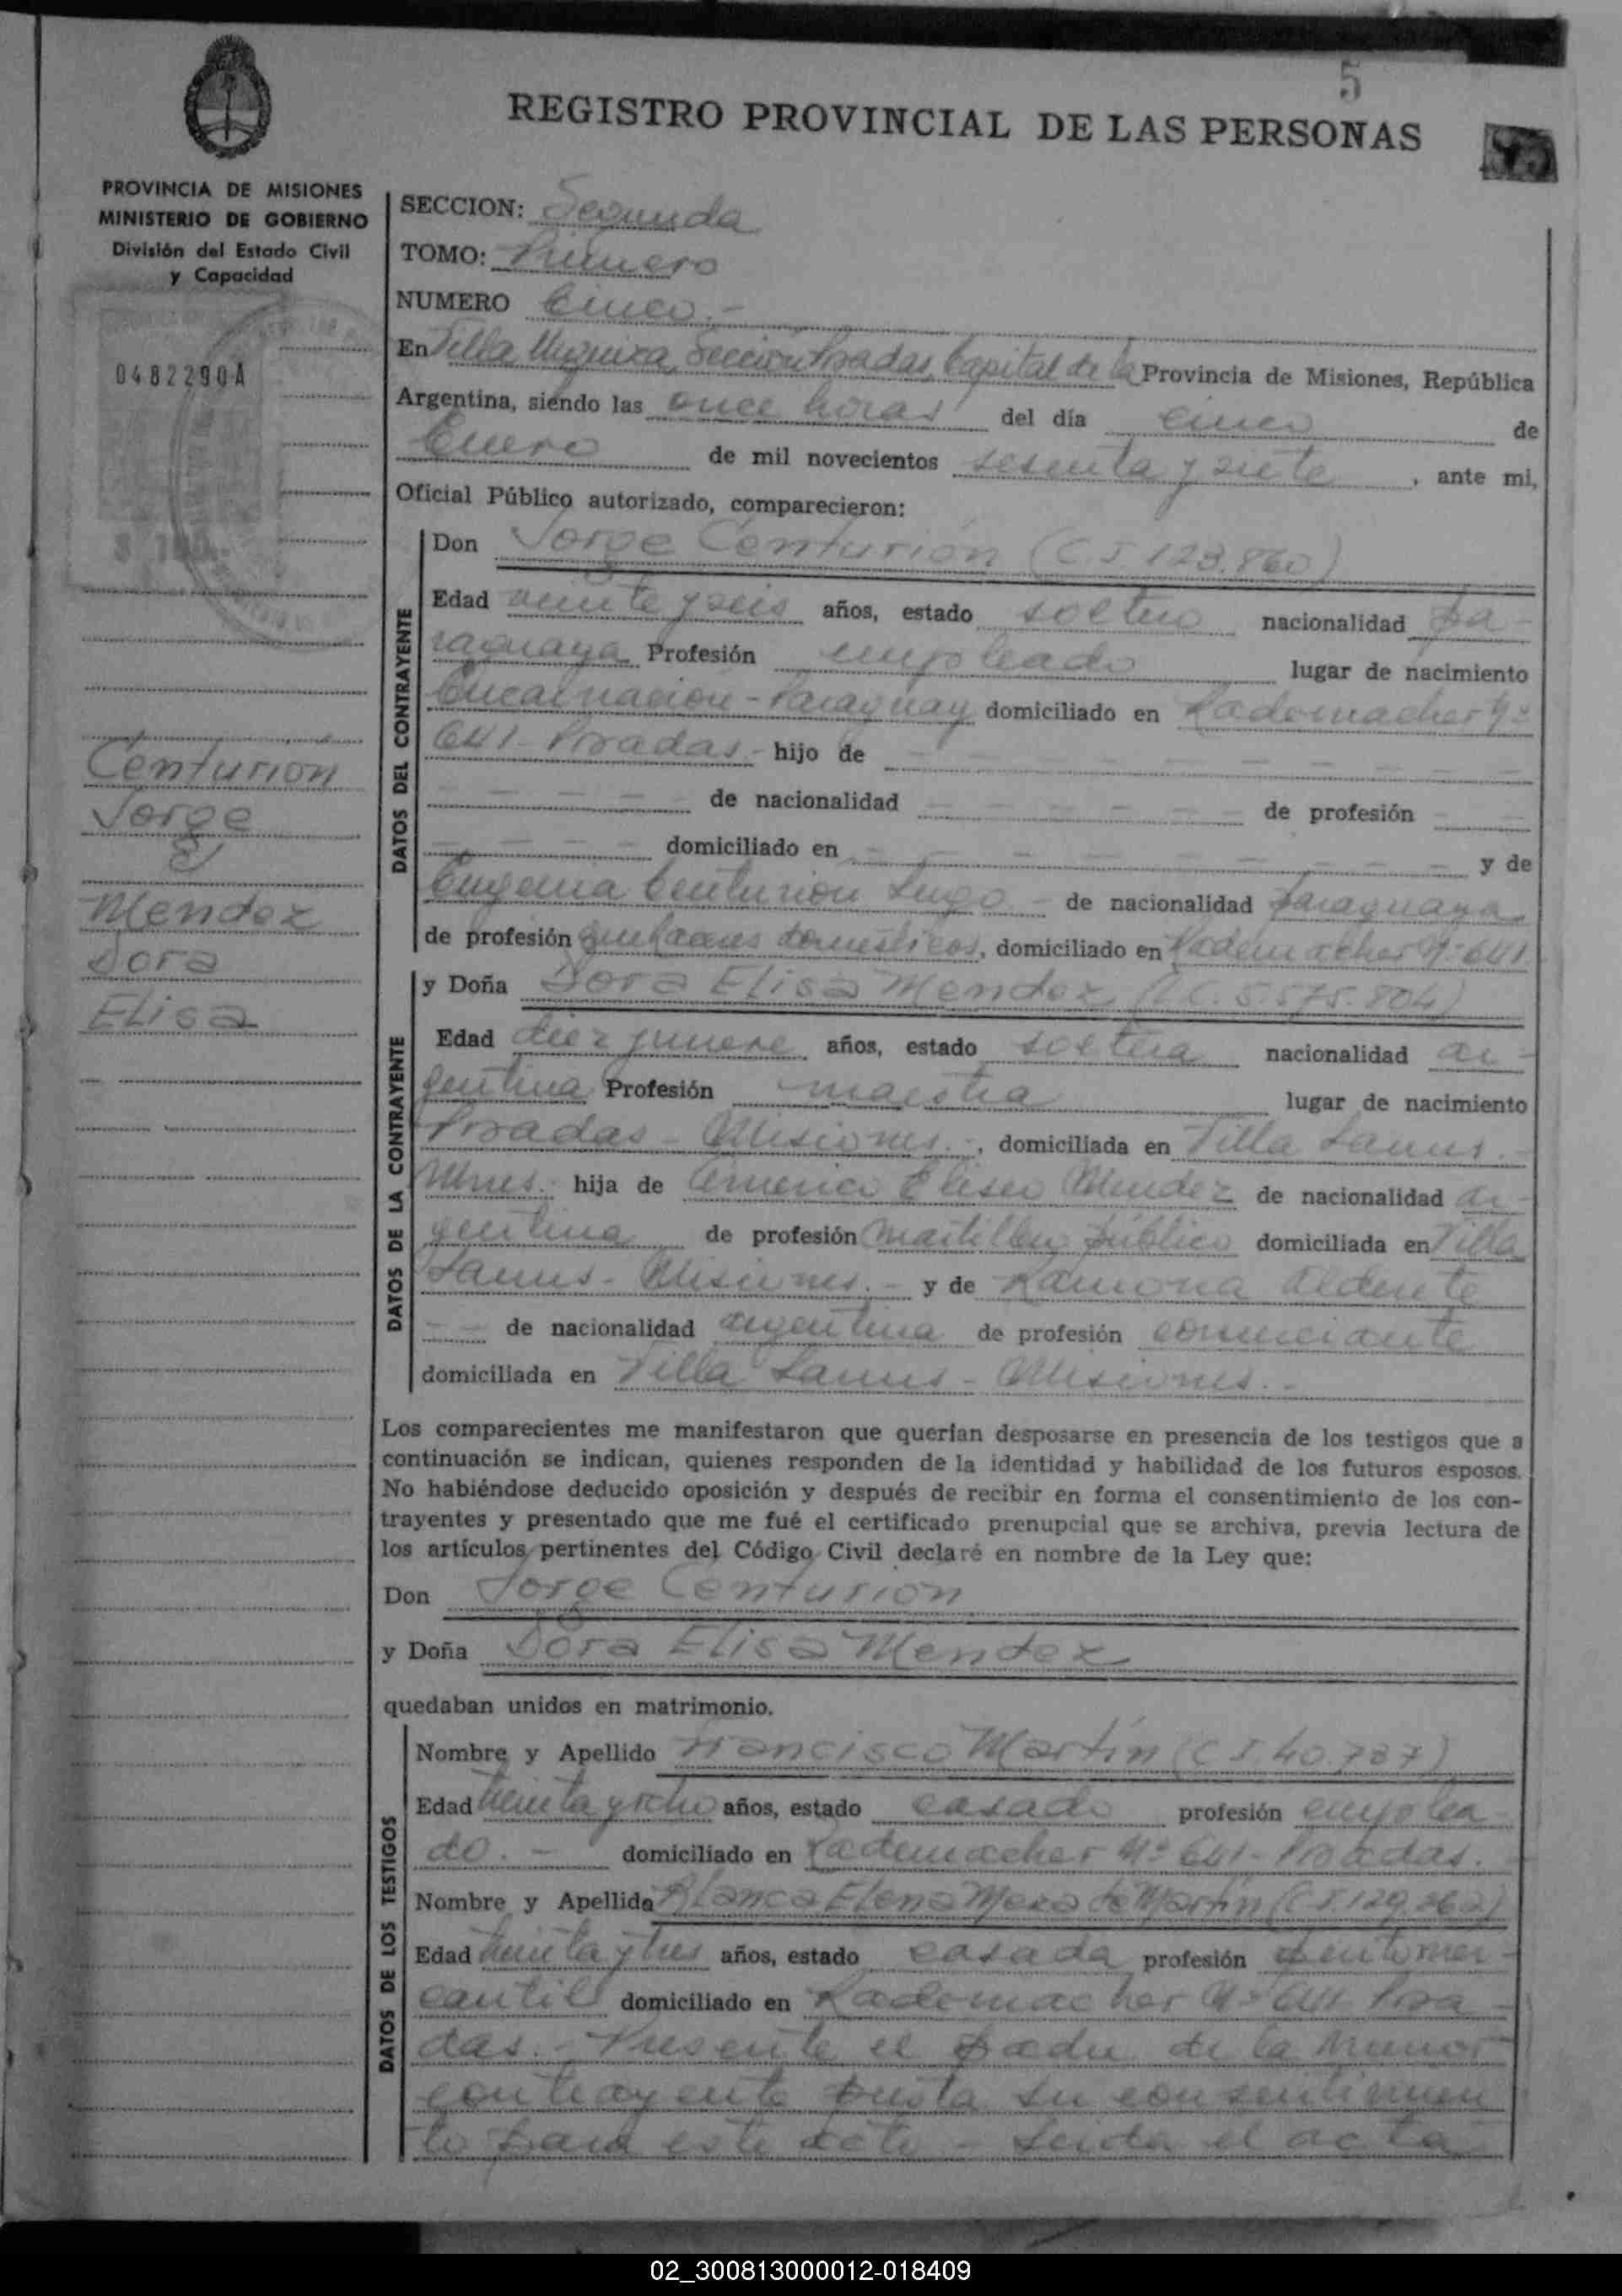 5
REGISTRO PROVINCIAL DE LAS PERSONAS
PROVINCIA DE MISIONES
MINISTERIO DE GOBIERNO
División del Estado Civil
y Capacidad
0482290A
Centurion
Jorge
y
Mendez
Dora
Elisa
SECCION: Segunda
TOMO: Primero
NUMERO Cinco.-
En Villa Urquiza, Sección Posadas, Capital de la Provincia de Misiones, República
Argentina, siendo las once horas del día cinco de
Enero de mil novecientos sesenta y siete, ante mi,
Oficial Público autorizado, comparecieron:
DATOS DEL CONTRAYENTE
Don Jorge Centurión (C.I 123.860)
Edad veinte y seis años, estado soltero nacionalidad pa-
raguaya Profesión empleado lugar de nacimiento
Encarnación - Paraguay domiciliado en Rademacher Nº
641 - Posadas.- hijo de - - - - - - -
- - - - - de nacionalidad - - - - - - de profesión - -
- - - - domiciliado en - - - - - - - - y de
Eugenia Centurion Lugo - de nacionalidad paraguaya
de profesión quehaceres domésticos, domiciliado en Rademacher Nº 641.
DATOS DE LA CONTRAYENTE
y Doña Dora Elisa Mendez (L.C. 5.575.804)
Edad diez y nueve años, estado soltera nacionalidad ar-
gentina Profesión maestra lugar de nacimiento
Posadas - Misiones.-, domiciliada en Villa Lanus.-
Mnes. hija de Americo Eliseo Mendez de nacionalidad ar-
gentina de profesión martillero público domiciliada en Villa
Lanus - Misiones.- y de Ramona Alderete
- - de nacionalidad argentina de profesión comerciante
domiciliada en Villa Lanus - Misiones.-
Los comparecientes me manifestaron que querían desposarse en presencia de los testigos que a
continuación se indican, quienes responden de la identidad y habilidad de los futuros esposos.
No habiéndose deducido oposición y después de recibir en forma el consentimiento de los con-
trayentes y presentado que me fué el certificado prenupcial que se archiva, previa lectura de
los artículos pertinentes del Código Civil declaré en nombre de la Ley que:
Don Jorge Centurion
y Doña Dora Elisa Mendez
quedaban unidos en matrimonio.
DATOS DE LOS TESTIGOS
Nombre y Apellido Francisco Martín (C I. 40.787)
Edad treinta y ocho años, estado casado profesión emplea
do.- domiciliado en Rademacher Nº 641 - Posadas.
Nombre y Apellido Blanca Elena Meza de Martín (C I. 129.262)
Edad treinta y tres años, estado casada profesión
cantil domiciliado en Rademacher Nº 641 Posa-
das.- Presente el padre de la menor
contrayente presta su consentimien
to para este acto - Leida el acta
02_300813000012-018409